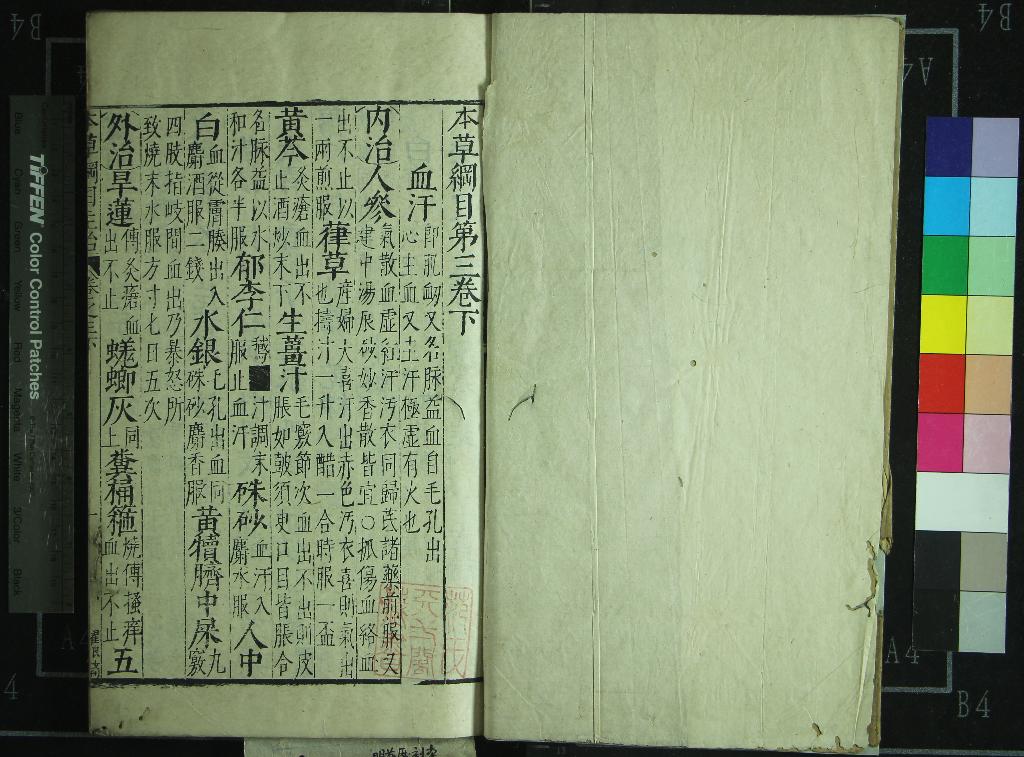 本草綱目第三卷下
血汗 即肌衂又名脉益血自毛孔出
心主血又主汗極虛有火也
内治人參 氣散血虛紅汗汚衣同歸芪諸藥煎服又
建中湯辰砂妙香散皆宜○抓傷血絡血
出不止以
一兩煎服葎草 産婦大喜汗出赤色汚衣喜則氣出
也擣汁一升入醋一合時服一盃
黄芩 灸瘡血出不
止酒炒末下生薑汁 毛竅節次血出不出則皮
脹如皷須臾口目皆脹合
名脉益以水
和汁各半服郁李仁 鵝 汁調末
服止血汗 硃砂 血汗入
麝水服人中
白 血從膚腠出入
麝酒服二錢水銀 毛孔出血同
硃砂麝香服黄犢臍中屎 九竅
四肢指岐間血出乃暴怒所
致燒末水服方寸匕日五次
外治旱蓮 傅灸瘡血
出不止蜣蜋灰 同
上糞桶箍 燒傅搔痒
血出不止五
本草綱目主治 卷之三下
TIFFEN Color Control Patches
Blue Cyan Green Yellow Red Magenta White 3/Color Black
B4
A4